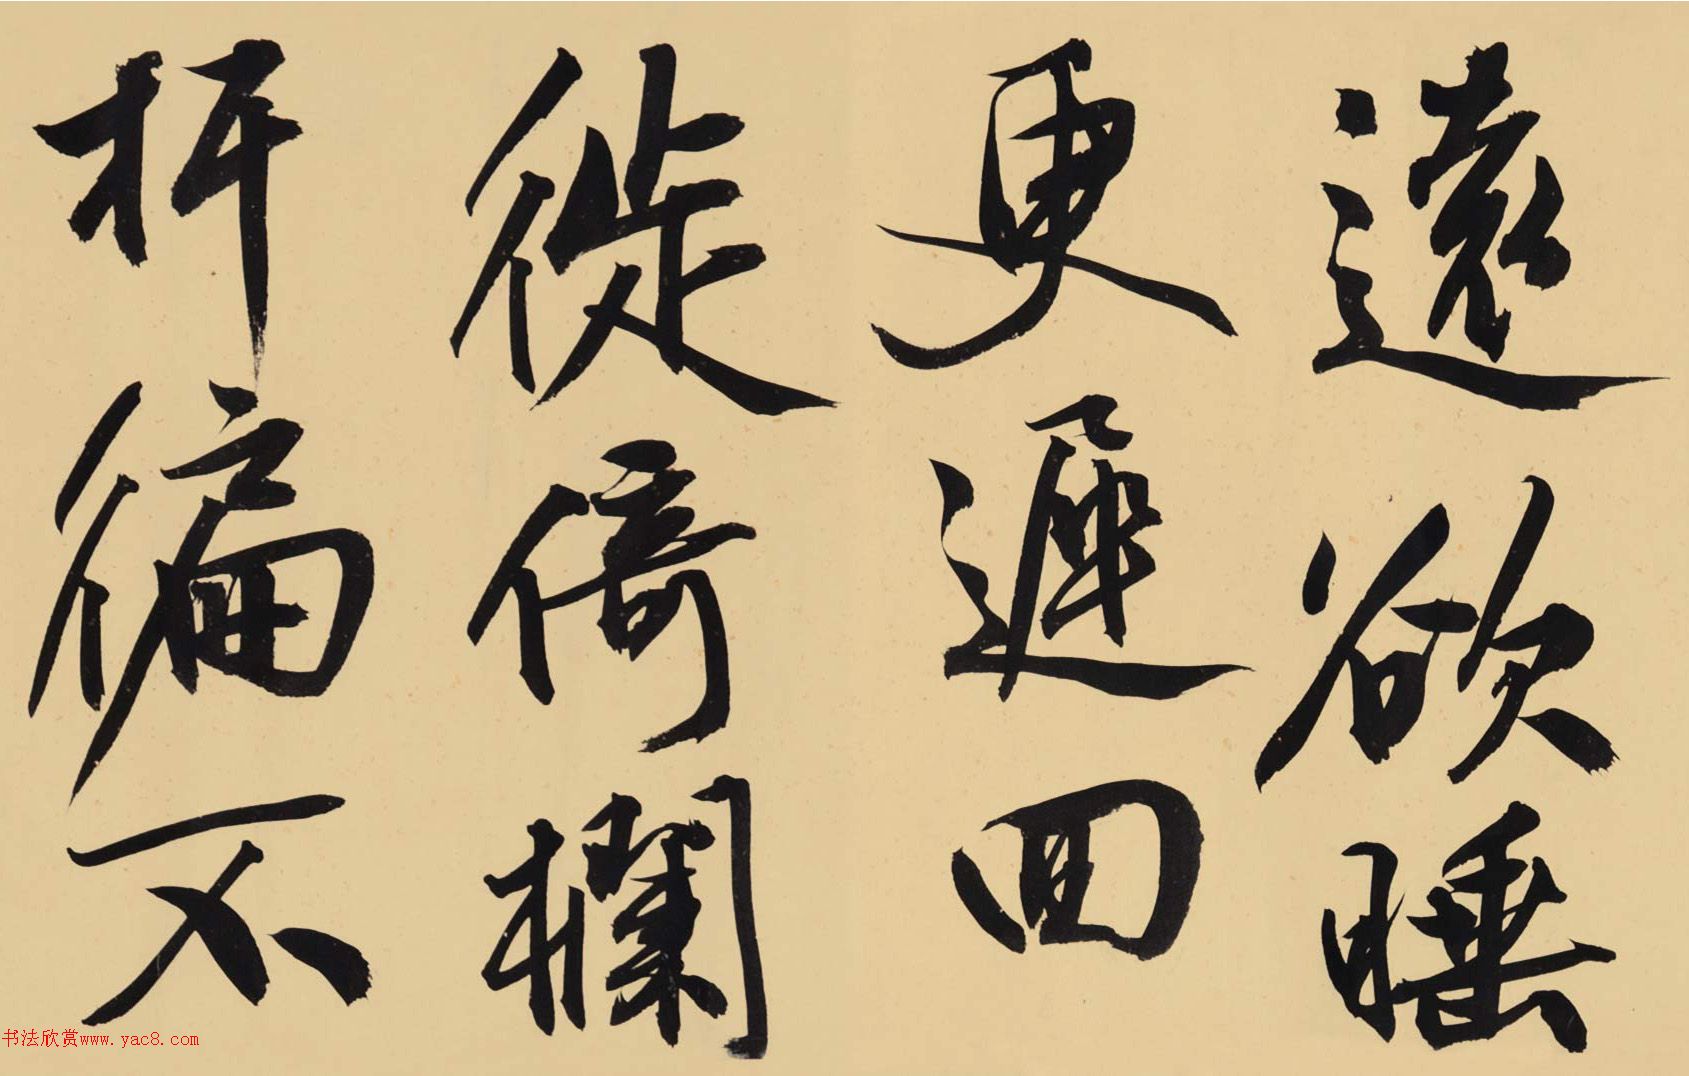 遠欲睡
更遲回
徙倚欄
折徧不
书法欣赏www.yac8.com